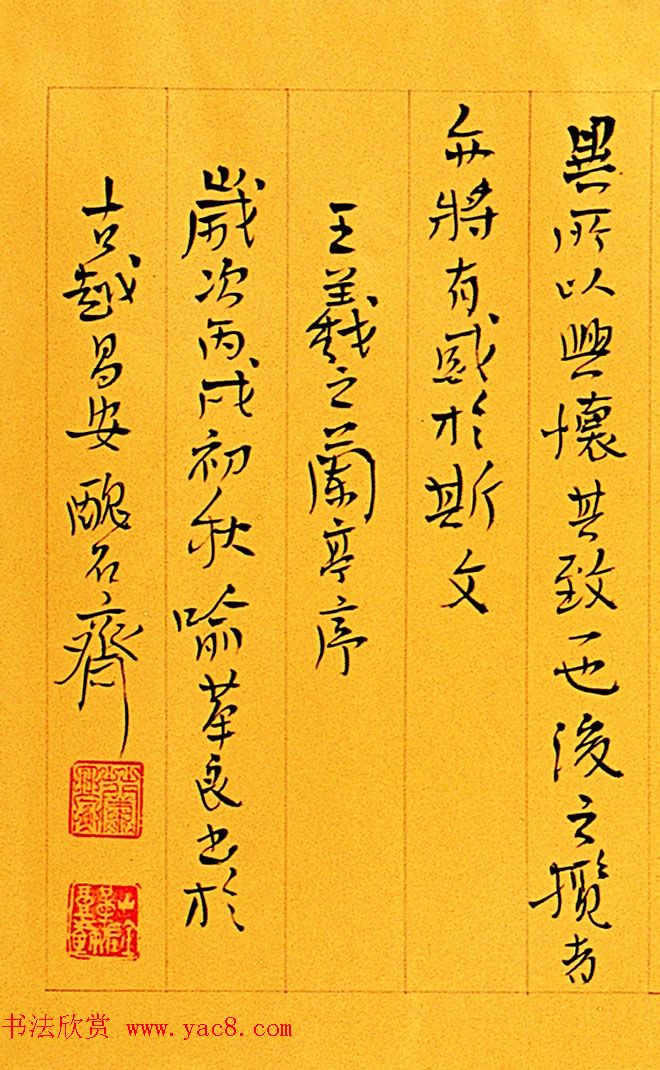 異所以興懷其致一也後之攬者
亦將有感於斯文
王羲之蘭亭序
歲次丙戌初秋喻革良書於
古越昌安醜石齋
书法欣赏 www.yac8.com